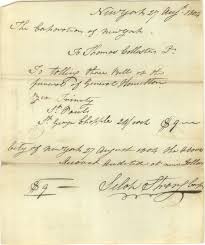 New York 27 Augt. 1804
The Corporation of New York
To Thomas Collister Dr
To tolling three Bells at the
funeral of General Hamilton
viz Trinity
St Pauls
St Georges Chapple $9
City of New York 27 August 1804 the above
Account Audited at nine Dollars
$9
Selah Strong